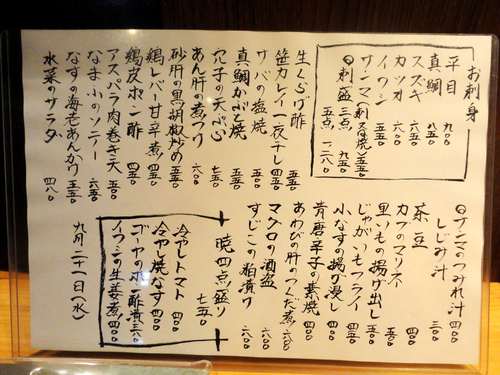 お刺身
平目 九〇〇
真鯛 八五〇
スズキ 六五〇
カツオ 六五〇
イワシ 五五〇
サンマ(刺又は焼) 五五〇
◎刺盛 三点 九五〇
五点 一二八〇
生くらげ酢 五五〇
笹カレイ一夜干し 五五〇
サバの塩焼
真鯛かぶと焼
穴子の天ぷら 七五〇
あん肝の煮つけ 六〇〇
砂肝の黒胡椒炒め 五五〇
鶏レバー甘辛煮 四五〇
鶏皮ポン酢 四五〇
アスパラ肉巻き天 五五〇
なまふのソテー 六五〇
なすの海老あんかけ 五五〇
水菜のサラダ 四八〇
◎サンマのつみれ汁 四〇〇
しじみ汁 三〇〇
茶豆 四〇〇
カブのマリネ
里いもの揚げ出し
じゃがいもフライ
小なすの揚げ浸し 四五〇
青唐辛子の素焼 四〇〇
あわびの肝のつくだ煮 六八〇
マグロの酒盗
すじこの粕漬け 六〇〇
暁四点盛り 七五〇
冷やしトマト 四〇〇
冷やし焼なす 四五〇
ゴーヤの水雲酢漬 三八〇
イワシの生姜煮 四〇〇
九月二十一日(水)